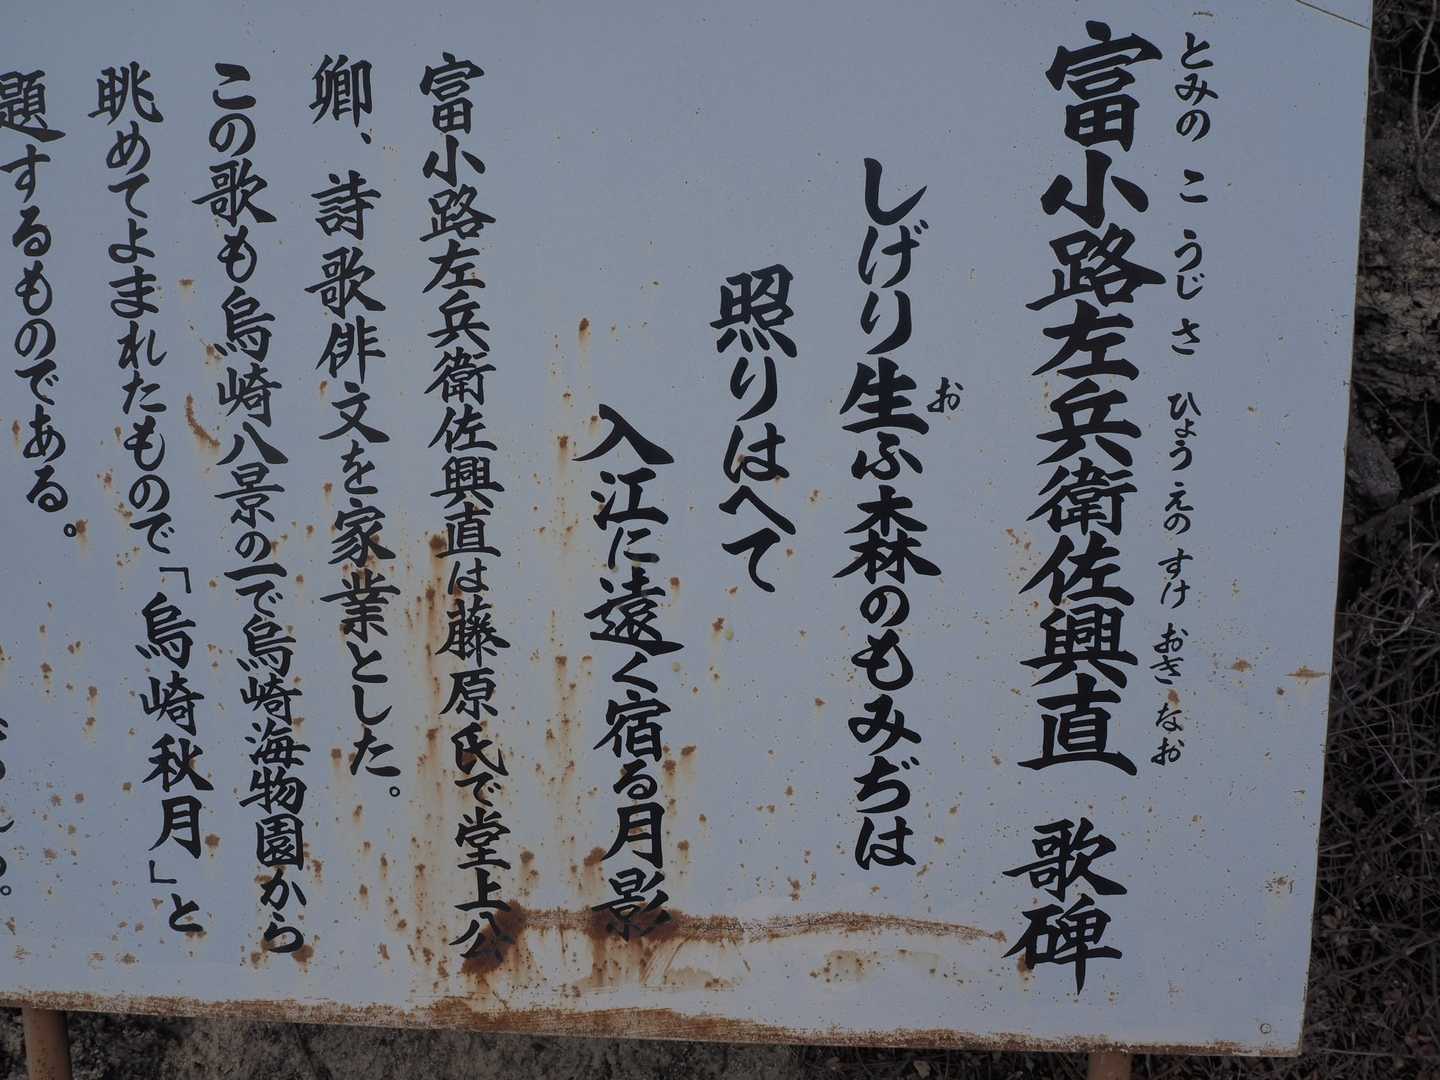 富小路左兵衛佐興直 歌碑
とみのこうじさひょうえのすけおきなお
しげり生ふ森のもみぢは
お
照りはへて
入江に遠く宿る月影
富小路左兵衛佐興直は藤原氏で堂上公
卿、詩歌俳文を家業とした。
この歌も烏崎八景の一で烏崎海物園から
眺めてよまれたもので「烏崎秋月」と
題するものである。